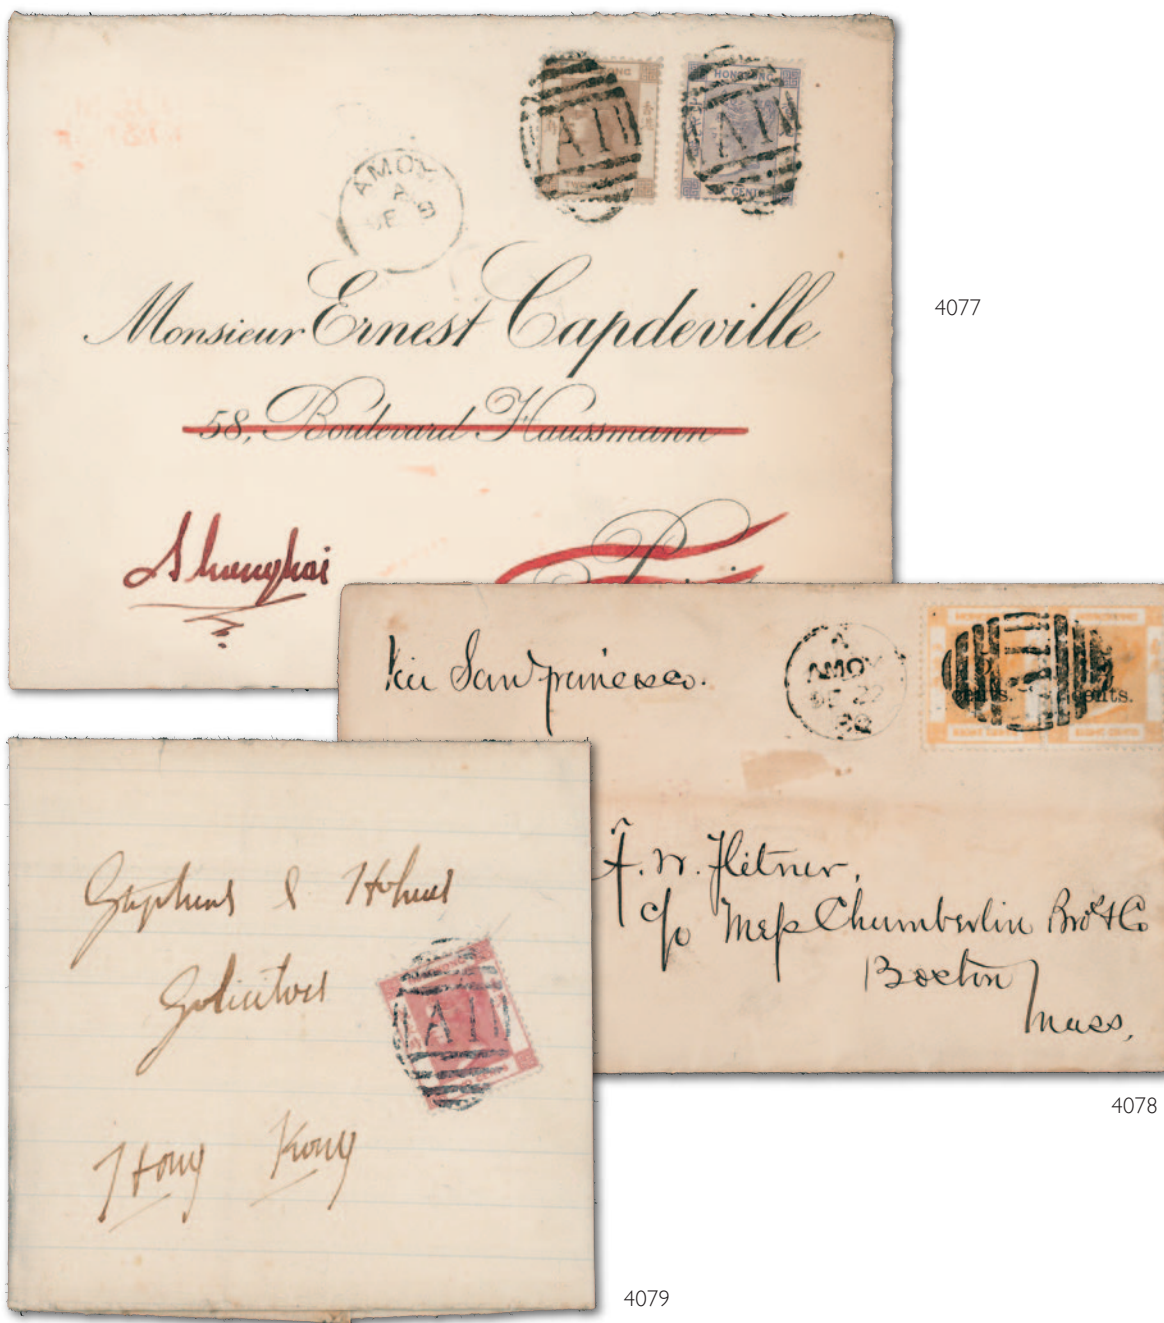 HONG KONG
A1
A1
CENTS
AMOY
A
DE 8
4077
Monsieur Ernest Capdeville
58, Boulevard Haussmann
Shanghai
Paris
Via San Francisco.
A
AMOY
DE 22
cents. cents.
A1
F. W. Flitner,
c/o Mess Chumberlin Bros & Co
Boston
Mass,
4078
Stephens & Holmes
Solicitors
A1
Hong Kong
4079